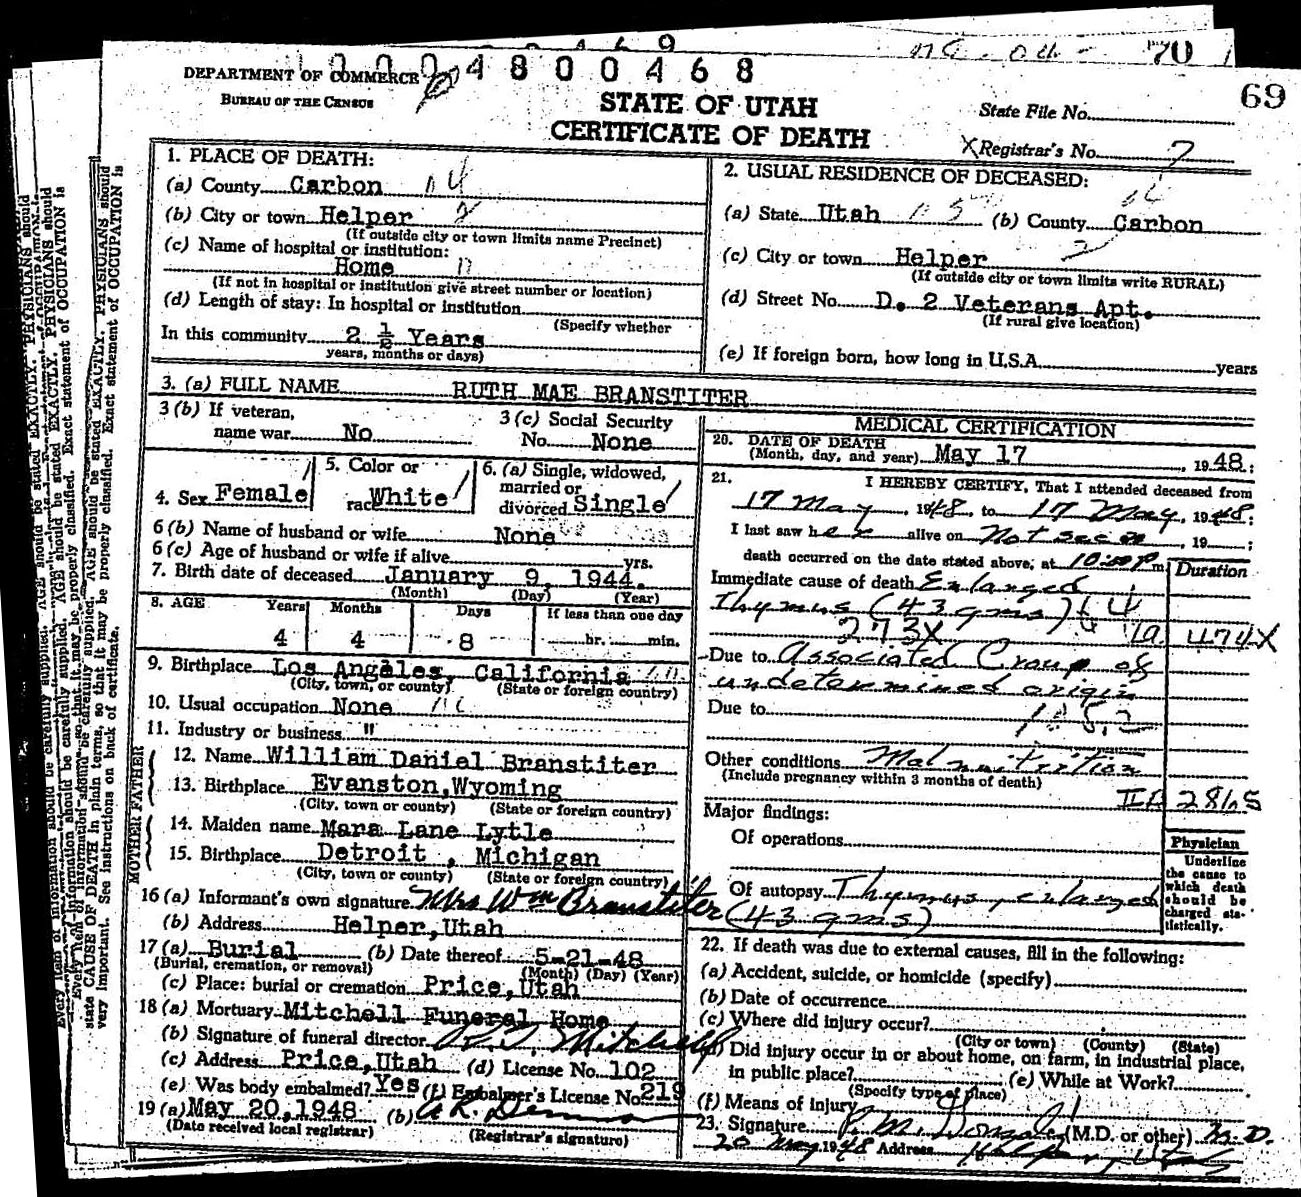 69
70
DEPARTMENT OF COMMERCE
BUREAU OF THE CENSUS
4800468
STATE OF UTAH
CERTIFICATE OF DEATH
State File No.
X Registrar's No. 7
1. PLACE OF DEATH:
(a) County Carbon
(b) City or town Helper
(If outside city or town limits name Precinct)
(c) Name of hospital or institution:
Home
(If not in hospital or institution give street number or location)
(d) Length of stay: In hospital or institution
(Specify whether
In this community 2 ½ Years
years, months or days)
2. USUAL RESIDENCE OF DECEASED:
(a) State Utah (b) County Carbon
(c) City or town Helper
(If outside city or town limits write RURAL)
(d) Street No. D. 2 Veterans Apt.
(If rural give location)
(e) If foreign born, how long in U.S.A. years
3. (a) FULL NAME RUTH MAE BRANSTITER
3 (b) If veteran, name war No
3 (c) Social Security No. None
4. Sex Female
5. Color or race White
6. (a) Single, widowed, married or divorced Single
6 (b) Name of husband or wife None
6 (c) Age of husband or wife if alive yrs.
7. Birth date of deceased January 9, 1944.
(Month) (Day) (Year)
8. AGE Years Months Days If less than one day
4 4 8 hr. min.
9. Birthplace Los Angeles, California
(City, town, or county) (State or foreign country)
10. Usual occupation None
11. Industry or business "
FATHER
12. Name William Daniel Branstiter
13. Birthplace Evanston, Wyoming
(City, town or county) (State or foreign country)
MOTHER
14. Maiden name Mara Lane Lytle
15. Birthplace Detroit, Michigan
(City, town or county) (State or foreign country)
16 (a) Informant's own signature Mrs Wm Branstiter
(b) Address Helper, Utah
17 (a) Burial (b) Date thereof 5-21-48
(Burial, cremation, or removal) (Month) (Day) (Year)
(c) Place: burial or cremation Price, Utah
18 (a) Mortuary Mitchell Funeral Home
(b) Signature of funeral director Mitchell
(c) Address Price, Utah (d) License No. 102
(e) Was body embalmed? Yes (f) Embalmer's License No. 219
19 (a) May 20, 1948 (b)
(Date received local registrar) (Registrar's signature)
MEDICAL CERTIFICATION
20. DATE OF DEATH
(Month, day, and year) May 17, 1948;
21. I HEREBY CERTIFY, That I attended deceased from
17 May, 1948, to 17 May, 1948;
I last saw her alive on Not seen, 19 ;
death occurred on the date stated above, at 10:00 P m.
Duration
Immediate cause of death Enlarged
Thymus (43 gms)
273X 474X
Due to Associated Croup of
undetermined origin
Due to
Other conditions Malnutrition
(Include pregnancy within 3 months of death)
Major findings:
Of operations
Of autopsy Thymus, enlarged
(43 gms)
Physician
Underline the cause to which death should be charged statistically.
22. If death was due to external causes, fill in the following:
(a) Accident, suicide, or homicide (specify)
(b) Date of occurrence
(c) Where did injury occur?
(City or town) (County) (State)
(d) Did injury occur in or about home, on farm, in industrial place,
in public place? (e) While at Work?
(Specify type of place)
(f) Means of injury
23. Signature (M.D. or other) M.D.
20 May, 1948 Address Helper, Utah